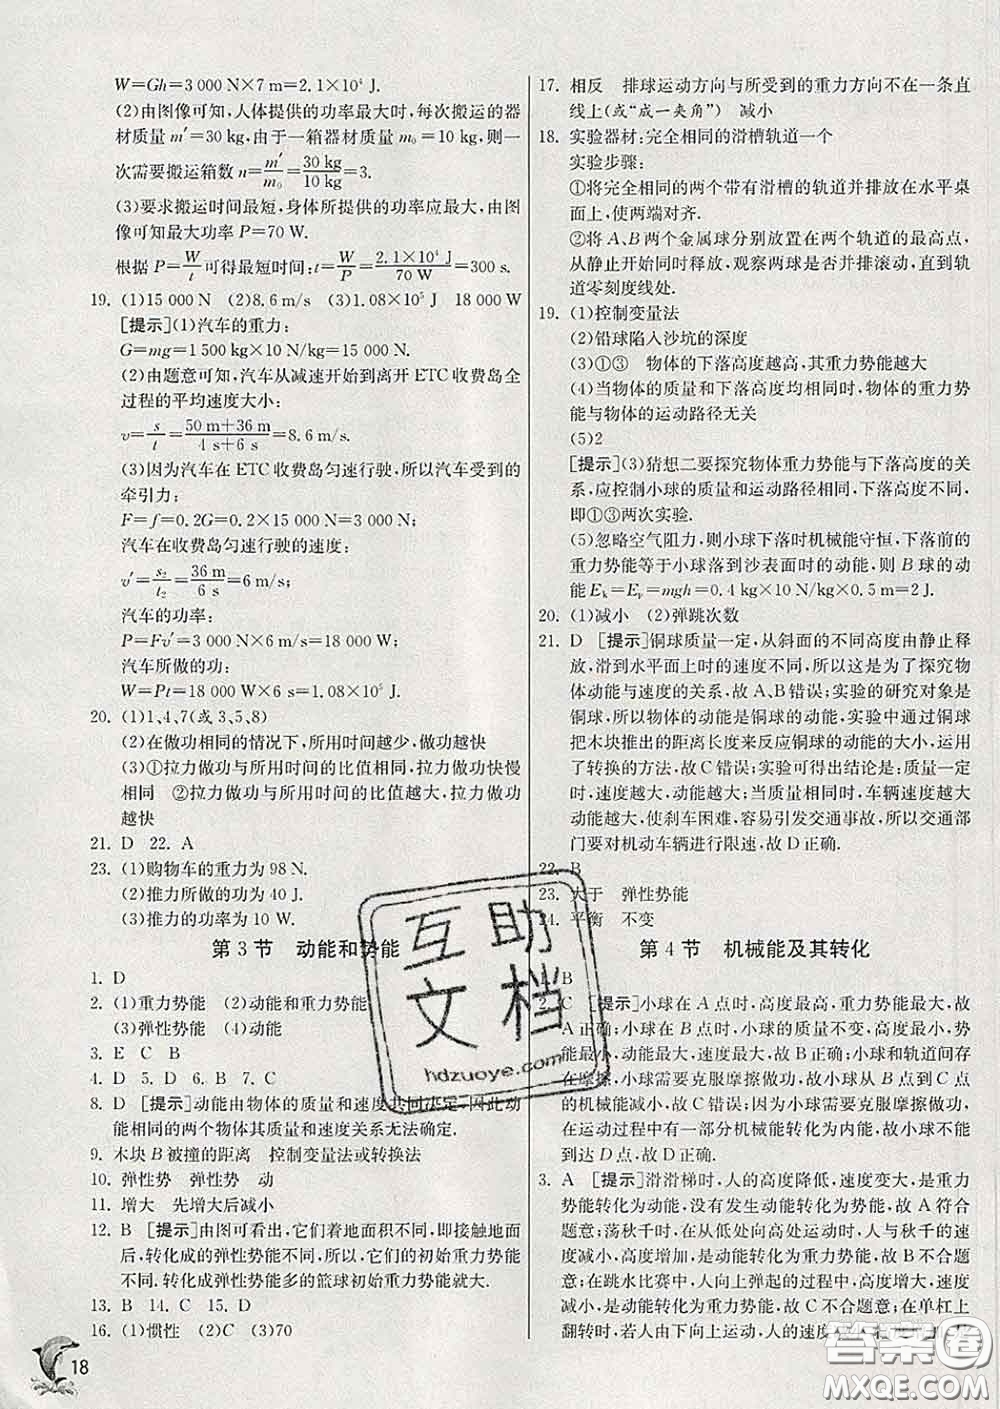 W=Gh=3 000 N×7 m=2.1×10⁴ J.
(2)由图像可知,人体提供的功率最大时,每次搬运的器
材质量 m′=30 kg,由于一箱器材质量 m₀=10 kg,则一
次需要搬运箱数 n=m′/m₀=30 kg/10 kg=3.
(3)要求搬运时间最短,身体所提供的功率应最大,由图
像可知最大功率 P=70 W.
根据 P=W/t可得最短时间:t=W/P=2.1×10⁴ J/70 W=300 s.
19. (1)15 000 N (2)8.6 m/s (3)1.08×10⁵ J 18 000 W
[提示](1)汽车的重力:
G=mg=1 500 kg×10 N/kg=15 000 N.
(2)由题意可知,汽车从减速开始到离开 ETC 收费岛全
过程的平均速度大小:
v=s/t=50 m+36 m/4 s+6 s=8.6 m/s.
(3)因为汽车在 ETC 收费岛匀速行驶,所以汽车受到的
牵引力:
F=f=0.2G=0.2×15 000 N=3 000 N;
汽车在收费岛匀速行驶的速度:
v′=s₂/t₂=36 m/6 s=6 m/s;
汽车的功率:
P=Fv′=3 000 N×6 m/s=18 000 W;
汽车所做的功:
W=Pt=18 000 W×6 s=1.08×10⁵ J.
20. (1)1、4、7(或 3、5、8)
(2)在做功相同的情况下,所用时间越少,做功越快
(3)①拉力做功与所用时间的比值相同,拉力做功快慢
相同 ②拉力做功与所用时间的比值越大,拉力做功
越快
21. D 22. A
23. (1)购物车的重力为 98 N.
(2)推力所做的功为 40 J.
(3)推力的功率为 10 W.
第 3 节 动能和势能
1. D
2. (1)重力势能 (2)动能和重力势能
(3)弹性势能 (4)动能
3. E C B
4. D 5. D 6. B 7. B
8. D [提示]动能由物体的质量和速度共同决定,因此动
能相同的两个物体其质量和速度关系无法确定.
9. 木块 B 被撞的距离 控制变量法或转换法
10. 弹性势 弹性势 动
11. 增大 先增大后减小
12. B [提示]由图可看出,它们着地面积不同,即接触地面
后,转化成的弹性势能不同,所以,它们的初始重力势能
不同.转化成弹性势能多的篮球初始重力势能就大.
13. B 14. C 15. D
16. (1)惯性 (2)C (3)70
18
17. 相反 排球运动方向与所受到的重力方向不在一条直
线上(或“成一夹角”) 减小
18. 实验器材:完全相同的滑槽轨道一个
实验步骤:
①将完全相同的两个带有滑槽的轨道并排放在水平桌
面上,使两端对齐.
②将 A、B 两个金属球分别放置在两个轨道的最高点,
从静止开始同时释放,观察两球是否并排滚动,直到轨
道零刻度线处.
19. (1)控制变量法
(2)铅球陷入沙坑的深度
(3)①③ 物体的下落高度越高,其重力势能越大
(4)当物体的质量和下落高度均相同时,物体的重力势
能与物体的运动路径无关
(5)2
[提示](3)猜想二要探究物体重力势能与下落高度的关
系,应控制小球的质量和运动路径相同,下落高度不同,
即①③两次实验.
(5)忽略空气阻力,则小球下落时机械能守恒,下落前的
重力势能等于小球下落到沙表面时的动能,则 B 球的动
能 Eₖ=Eₚ=mgh=0.4 kg×10 N/kg×0.5 m=2 J.
20. (1)减小 (2)弹跳次数
21. D [提示]铜球质量一定,从斜面的不同高度由静止释
放,滑到水平面上时的速度不同,所以这是为了探究物
体动能与速度的关系,故 A、B 错误;实验的研究对象是
铜球,所以物体的动能是铜球的动能,实验中通过铜球
把木块推出的距离长度来反应铜球的动能的大小,运用
了转换的方法,故 C 错误;实验可得出结论是:质量一定
时,速度越大,动能越大;当质量相同时,车辆速度越大
动能越大,使刹车困难,容易引发交通事故,所以交通部
门要对机动车辆进行限速,故 D 正确.
22. B
23. 大于 弹性势能
24. 平衡 不变
第 4 节 机械能及其转化
1. B
2. C [提示]小球在 A 点时,高度最高,重力势能最大,故
A 正确;小球在 B 点时,小球的质量不变,高度最小,势
能最小,动能最大,速度最大,故 B 正确;小球和轨道间存
在摩擦,小球需要克服摩擦做功,所以小球从 A 到 C 点
的机械能减小,故 C 错误;因为小球需要克服摩擦做功,
在运动过程中有一部分机械能转化为内能,故小球不能
到达 D 点,故 D 正确.
3. A [提示]滑滑梯时,人的高度降低,速度变大,是重力
势能转化为动能,没有发生动能转化为势能,故 A 符合
题意;荡秋千时,在从低处向高处运动时,人与秋千的速度
减小,高度增加,是动能转化为重力势能,故 B 不合题意;
在跳水比赛中,人向上弹起的过程中,高度增大,速度
减小,是动能转化为重力势能,故 C 不合题意;在单杠上
翻转时,若人由下向上运动,人的
互助
文档
hdzuoye.com
答案圈
MXQE.COM